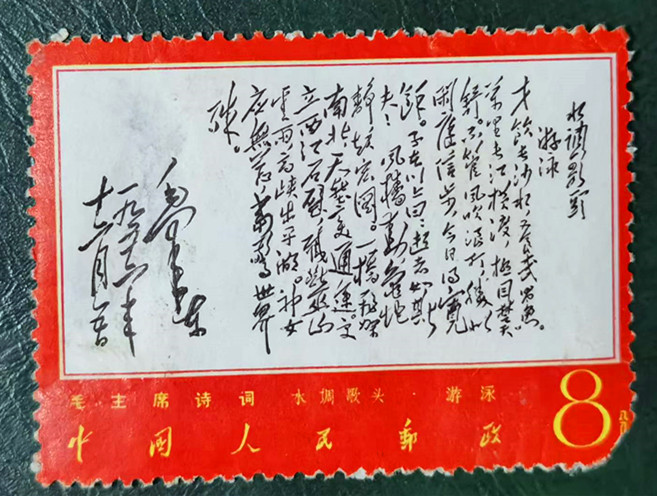 水调歌头
游泳
才饮长沙水，又食武昌鱼。
万里长江横渡，极目楚天
舒。不管风吹浪打，胜似
闲庭信步，今日得宽
馀。子在川上曰：逝者如斯
夫！风樯动，龟蛇
静，起宏图。一桥飞架
南北，天堑变通途。更
立西江石壁，截断巫山
云雨，高峡出平湖。神女
应無恙，当惊世界
殊。
毛泽东
一九五六年
十二月五日
毛主席诗词 水调歌头·游泳
中國人民郵政
8分